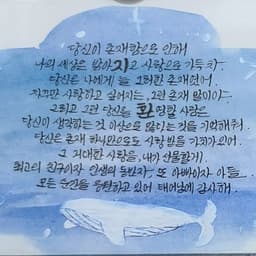 당신이 존재함으로 인해
나의 세상은 밝아지고 사랑으로 가득차.
당신은 나에게 늘 그러한 존재였어.
자꾸만 사랑하고 싶어지는, 그런 존재 말이야.
그리고 그런 당신을 환영할 사람은
당신이 생각하는 것 이상으로 많다는 것을 기억해줘.
당신은 존재 하나만으로도 사랑받을 가치가 있어.
그 거대한 사랑을, 내가 선물할게.
최고의 친구이자 인생의 동반자, 또 아빠이자 아들
모든 순간을 응원하고 있어 태어남에 감사해.